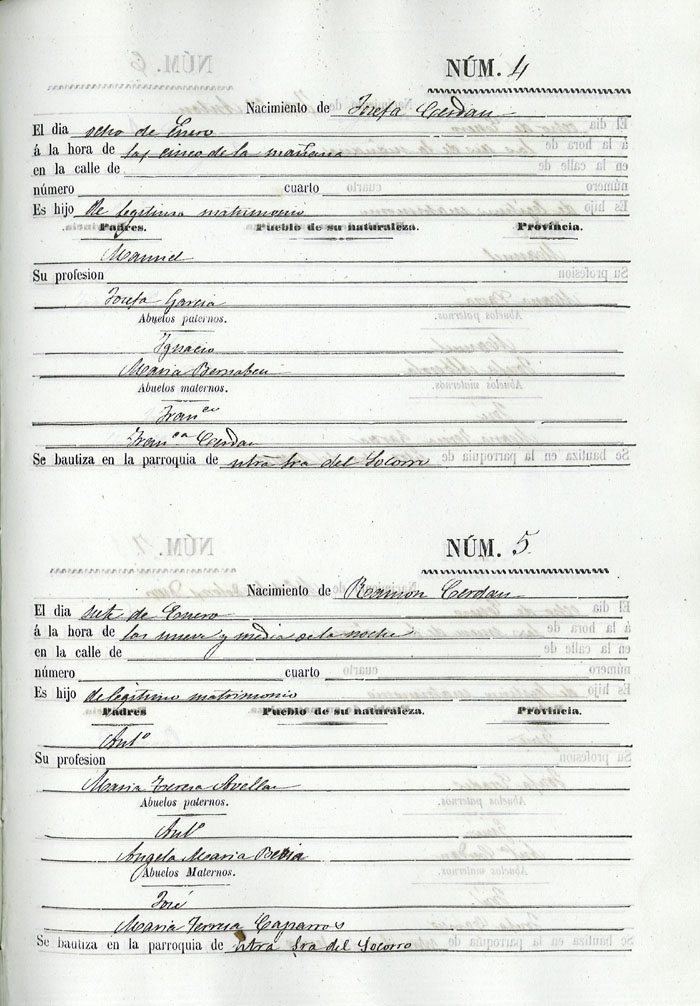 NÚM. 4
Nacimiento de Josefa Cerdan
El día ocho de Enero
á la hora de las cinco de la mañana
en la calle de
número cuarto
Es hijo de legitimo matrimonio
Padres. Pueblo de su naturaleza. Provincia.
Manuel
Su profesion
Josefa Garcia
Abuelos paternos.
Ignacio
Maria Bernabeu
Abuelos maternos.
Fran.co
Fran.ca Cerdan
Se bautiza en la parroquia de ntra Sra del Socorro
NÚM. 5.
Nacimiento de Ramon Cerdan
El dia siete de Enero
á la hora de las nueve y media de la noche
en la calle de
número cuarto
Es hijo de legitimo matrimonio
Padres Pueblo de su naturaleza. Provincia.
Ant.o
Su profesion
Maria Teresa Avellan
Abuelos paternos.
Ant.o
Angela Maria Bevia
Abuelos Maternos.
José
Maria Terresa Caparros
Se bautiza en la parroquia de ntra Sra del Socorro